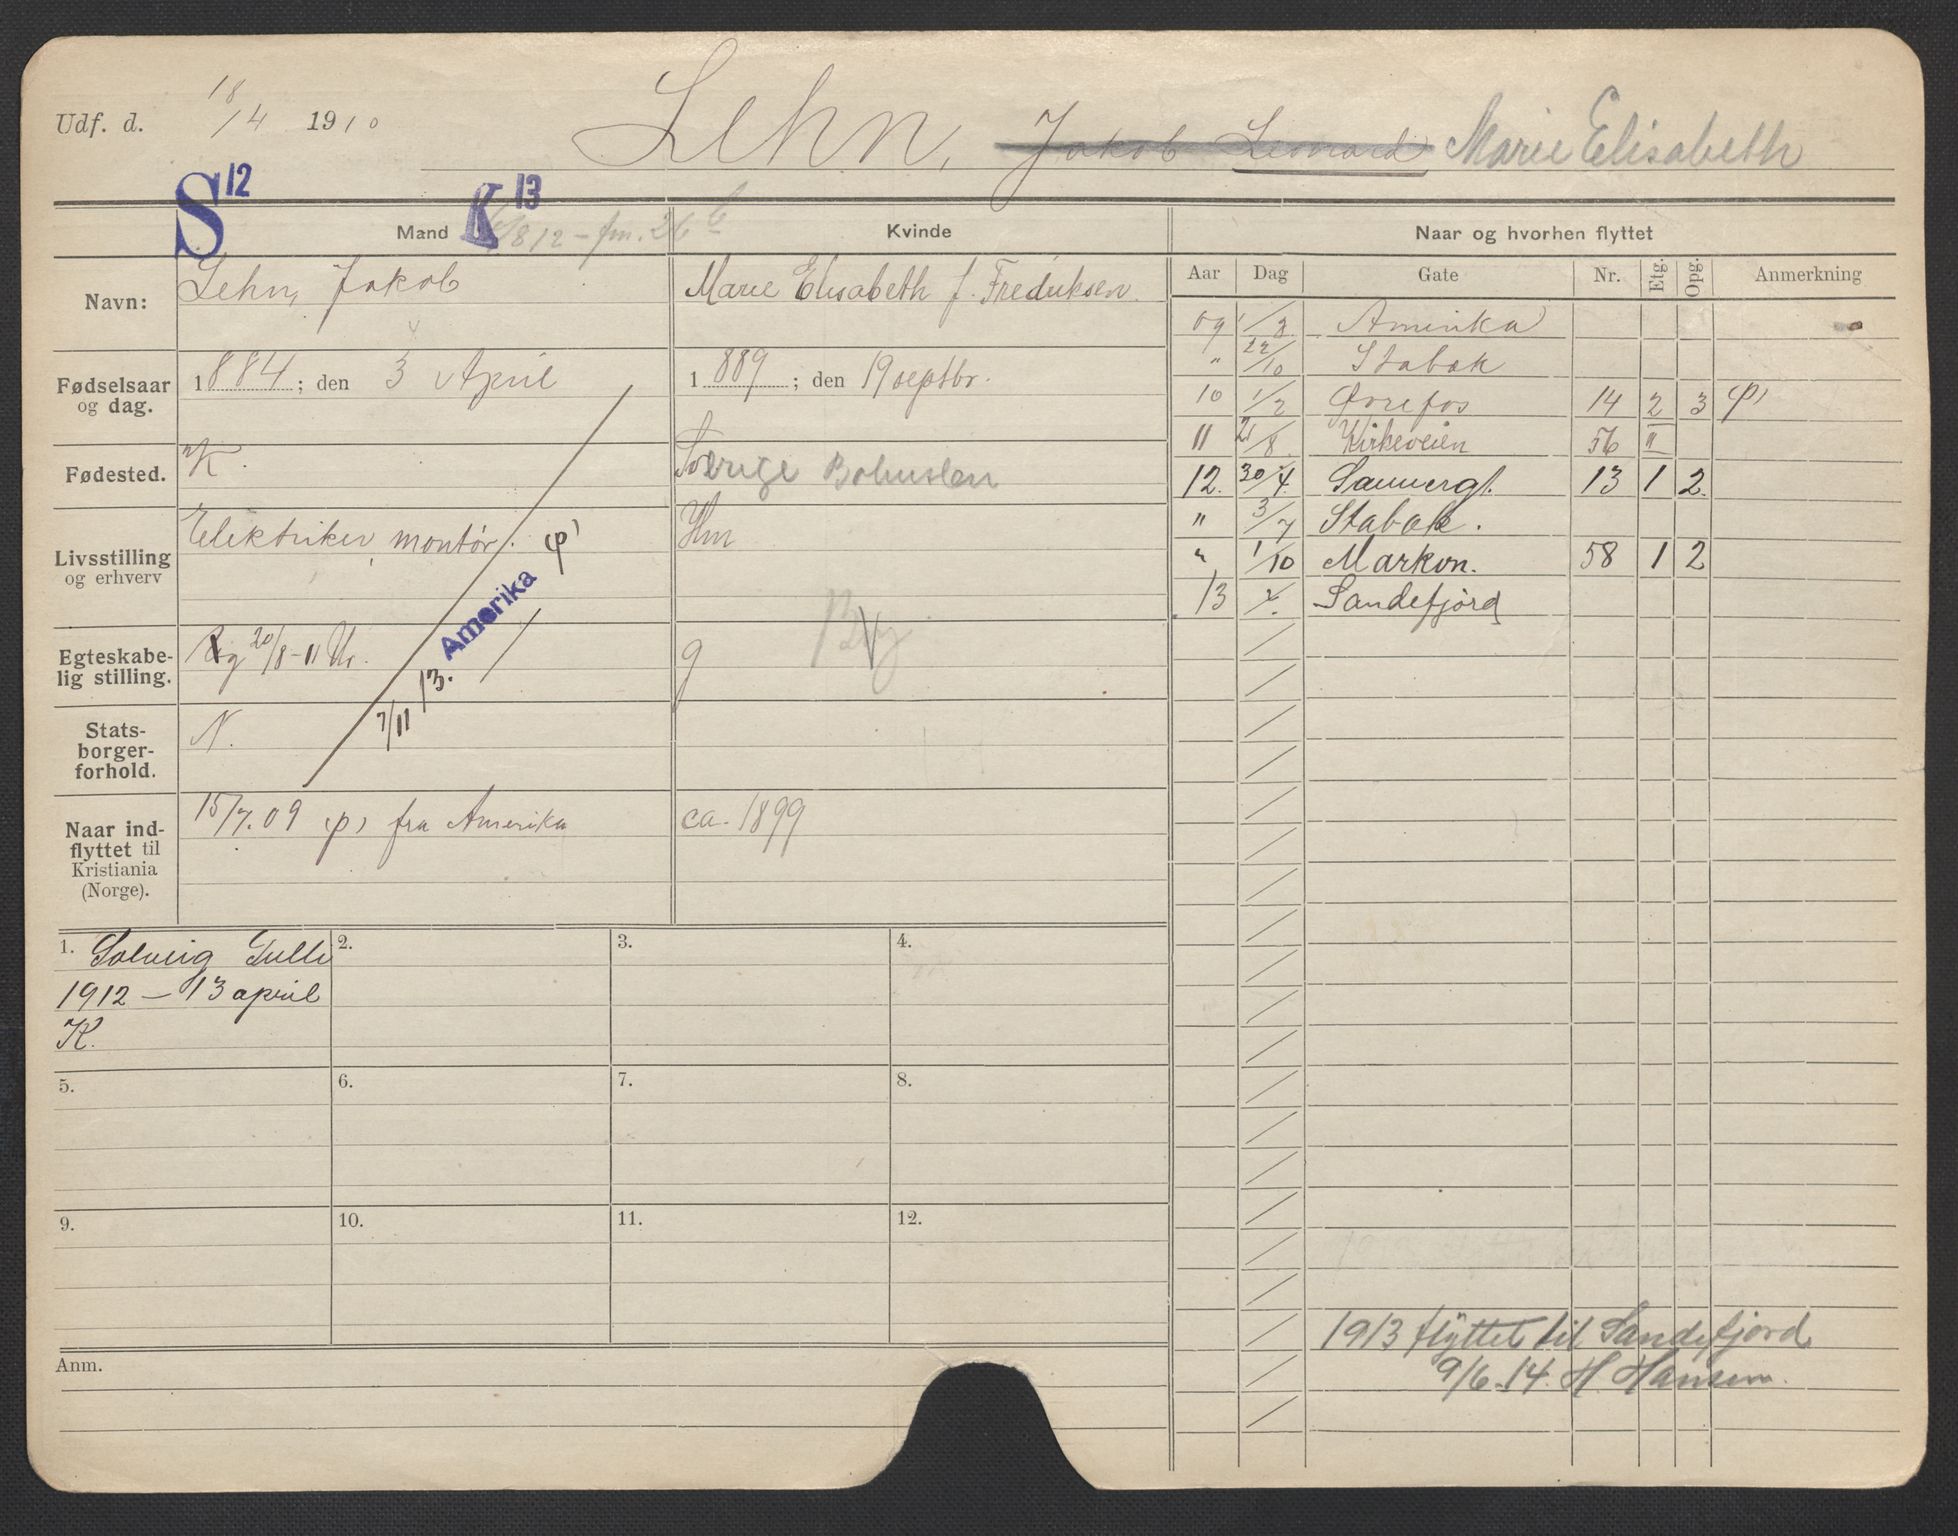 Udf. d. 18/4 1910
Lehn, Jakob Leonard Marie Elisabeth
S 12
K 13
Mand
8 12 – fm. 26
Kvinde
Naar og hvorhen flyttet
Navn:
Lehn, Jakob
Marie Elisabeth f. Fredriksen.
Fødselsaar og dag.
1884; den 3 April
1889; den 19 septbr.
Fødested.
K.
Sverige Bohuslen
Livsstilling og erhverv
Elektriker, montør.
Hm
φ)
Amerika
7/11 13.
Egteskabelig stilling.
g 20/8-11
g
Statsborgerforhold.
N.
Naar indflyttet til Kristiania (Norge).
15/7.09 φ) fra Amerika
ca. 1899
Aar Dag Gate Nr. Etg. Opg. Anmerkning
09 1/8 Amerika
" 22/10 Stabæk
10 1/2 Øvrefos 14 2 3 φ)
11 21/8 Kirkeveien 56 II
12. 30/4. Sannergt. 13 1 2.
" 3/7 Stabæk.
" 1/10 Markvn. 58 1 2
13 Sandefjord
1. Solveig
1912 – 13 april
K.
2.
3.
4.
5.
6.
7.
8.
9.
10.
11.
12.
Anm.
1913 flyttet til Sandefjord
9/6-14. H. Hansen.